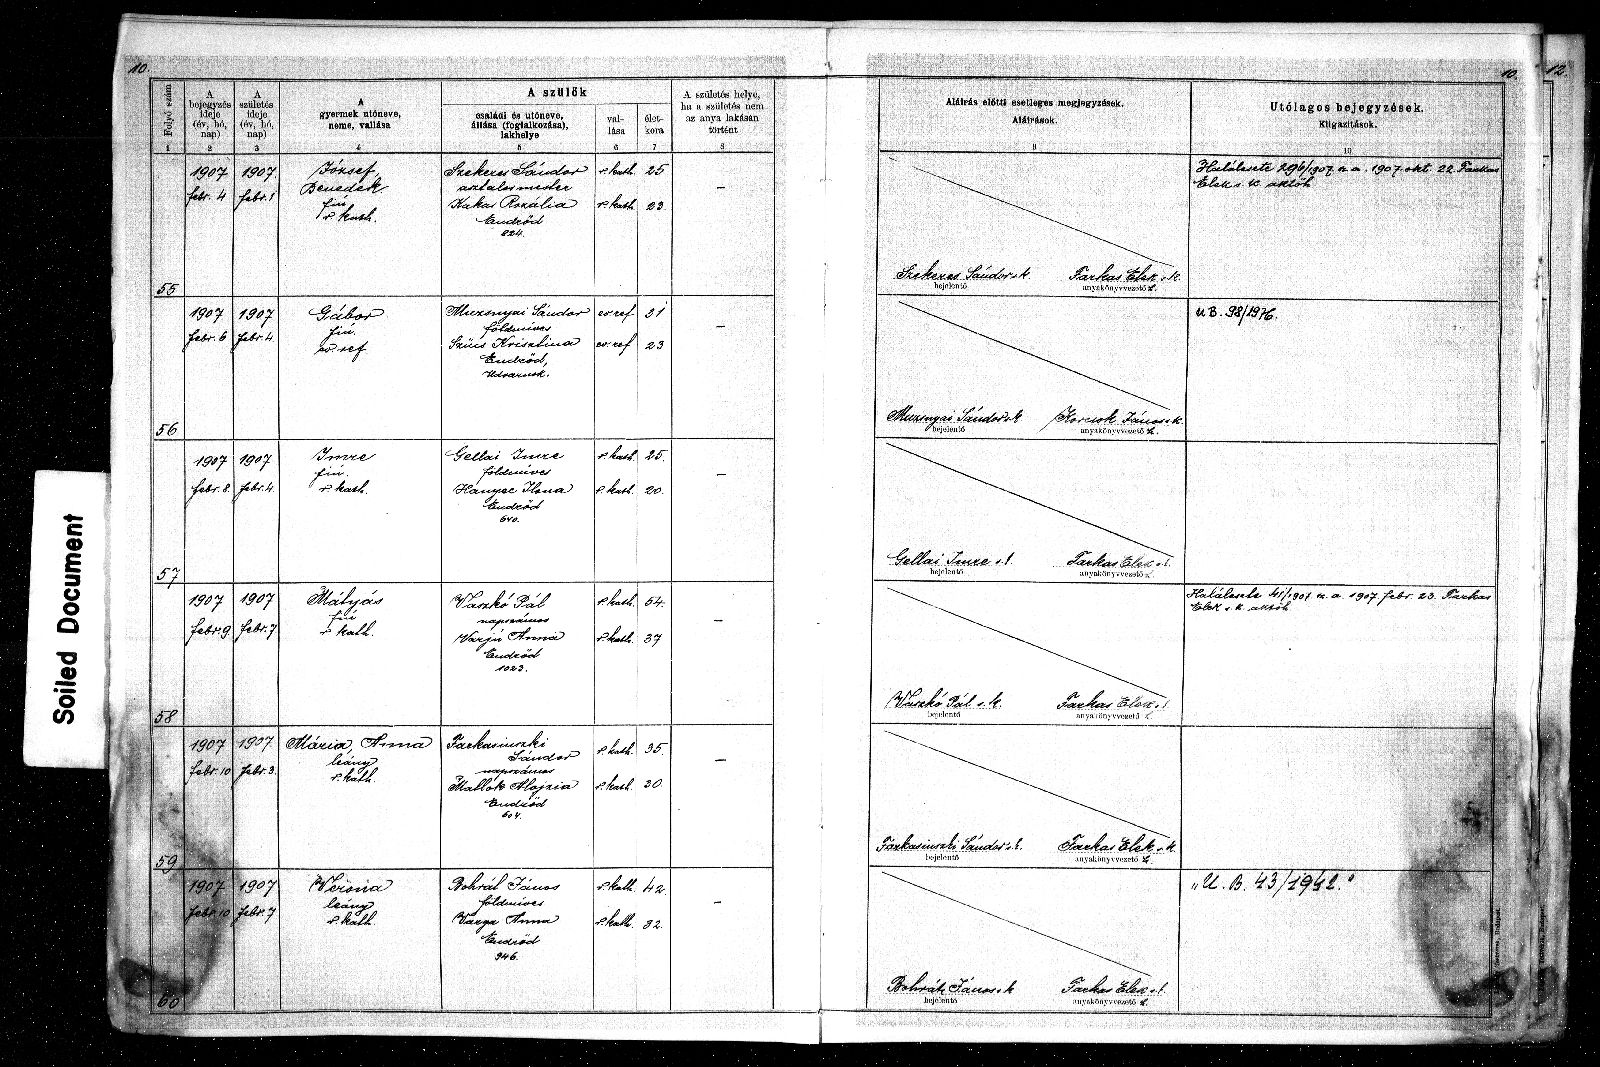 10.
10.
12.
Soiled Document
Folyó szám
A bejegyzés ideje (év, hó, nap)
A születés ideje (év, hó, nap)
A gyermek utóneve, neme, vallása
A szülők
családi és utóneve, állása (foglalkozása), lakhelye
val-lása
élet-kora
A születés helye, ha a születés nem az anya lakásán történt
Aláírás előtti esetleges megjegyzések.
Aláírások.
Utólagos bejegyzések.
Kiigazítások.
1 2 3 4 5 6 7 8 9 10
55
1907 febr. 4
1907 febr. 1
József,
Benedek
fiú
r. kath.
Szekeres Sándor r. kath. 25
asztalosmester
Kakas Rozália r. kath. 23.
Endrőd
824.
–
Szekeres Sándor s. k.
bejelentő
Farkas Elek s. k.
anyakönyvvezető
Haláleste 296/1907. a. a. 1907 okt. 22. Farkas
Elek s. k. aktóh
56
1907 febr. 6
1907 febr. 4.
Gábor
fiú.
ev. ref
Muzsnyai Sándor ev. ref 31
földmíves
Szücs Krisztina ev. ref 23
Endrőd,
Udvarnok.
–
Muzsnyai Sándor s. k.
bejelentő
Korcsok János s. k.
anyakönyvvezető
U B. 98/1976.
57
1907 febr. 8.
1907 febr. 4.
Imre
fiú.
r. kath.
Gellai Imre r. kath. 25.
földmíves
Hanyec Ilona r. kath. 20.
Endrőd
640.
–
Gellai Imre s. k.
bejelentő
Farkas Elek s. k.
anyakönyvvezető
58
1907 febr. 9
1907 febr. 7
Mátyás
fiú
r. kath.
Vaszkó Pál r. kath. 54.
napszámos
Varjú Anna r. kath. 37
Endrőd
1023.
–
Vaszkó Pál s. k.
bejelentő
Farkas Elek s. k.
anyakönyvvezető
Haláleste 41/1907. a. a. 1907 febr. 23. Farkas
Elek s. k. aktóh
59
1907 febr. 10
1907. febr. 3.
Mária, Anna
leány
r. kath.
Farkasinszki
Sándor r. kath. 35.
napszámos
Mallok Alojzia r. kath. 30.
Endrőd
604.
–
Farkasinszki Sándor s. k.
bejelentő
Farkas Elek s. k.
anyakönyvvezető
60
1907 febr. 10
1907 febr. 7
Verona
leány
r. kath.
Bohrát János r. kath. 42.
földmíves
Varga Anna r. kath. 32.
Endrőd
946.
–
Bohrát János s. k.
bejelentő
Farkas Elek s. k.
anyakönyvvezető
"U. B. 43/1942."